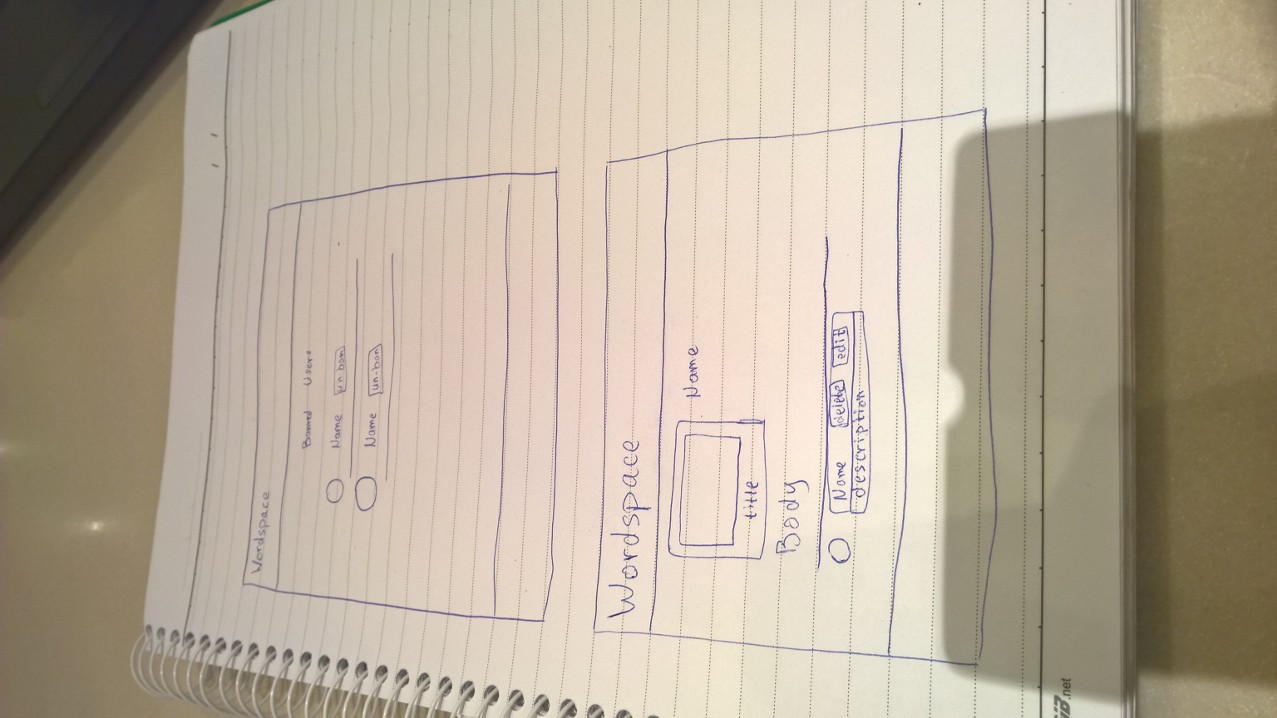 Wordspace
Banned Users
Name un-ban
Name un-ban
Wordspace
Name
title
Body
Name delete edit
description
.net